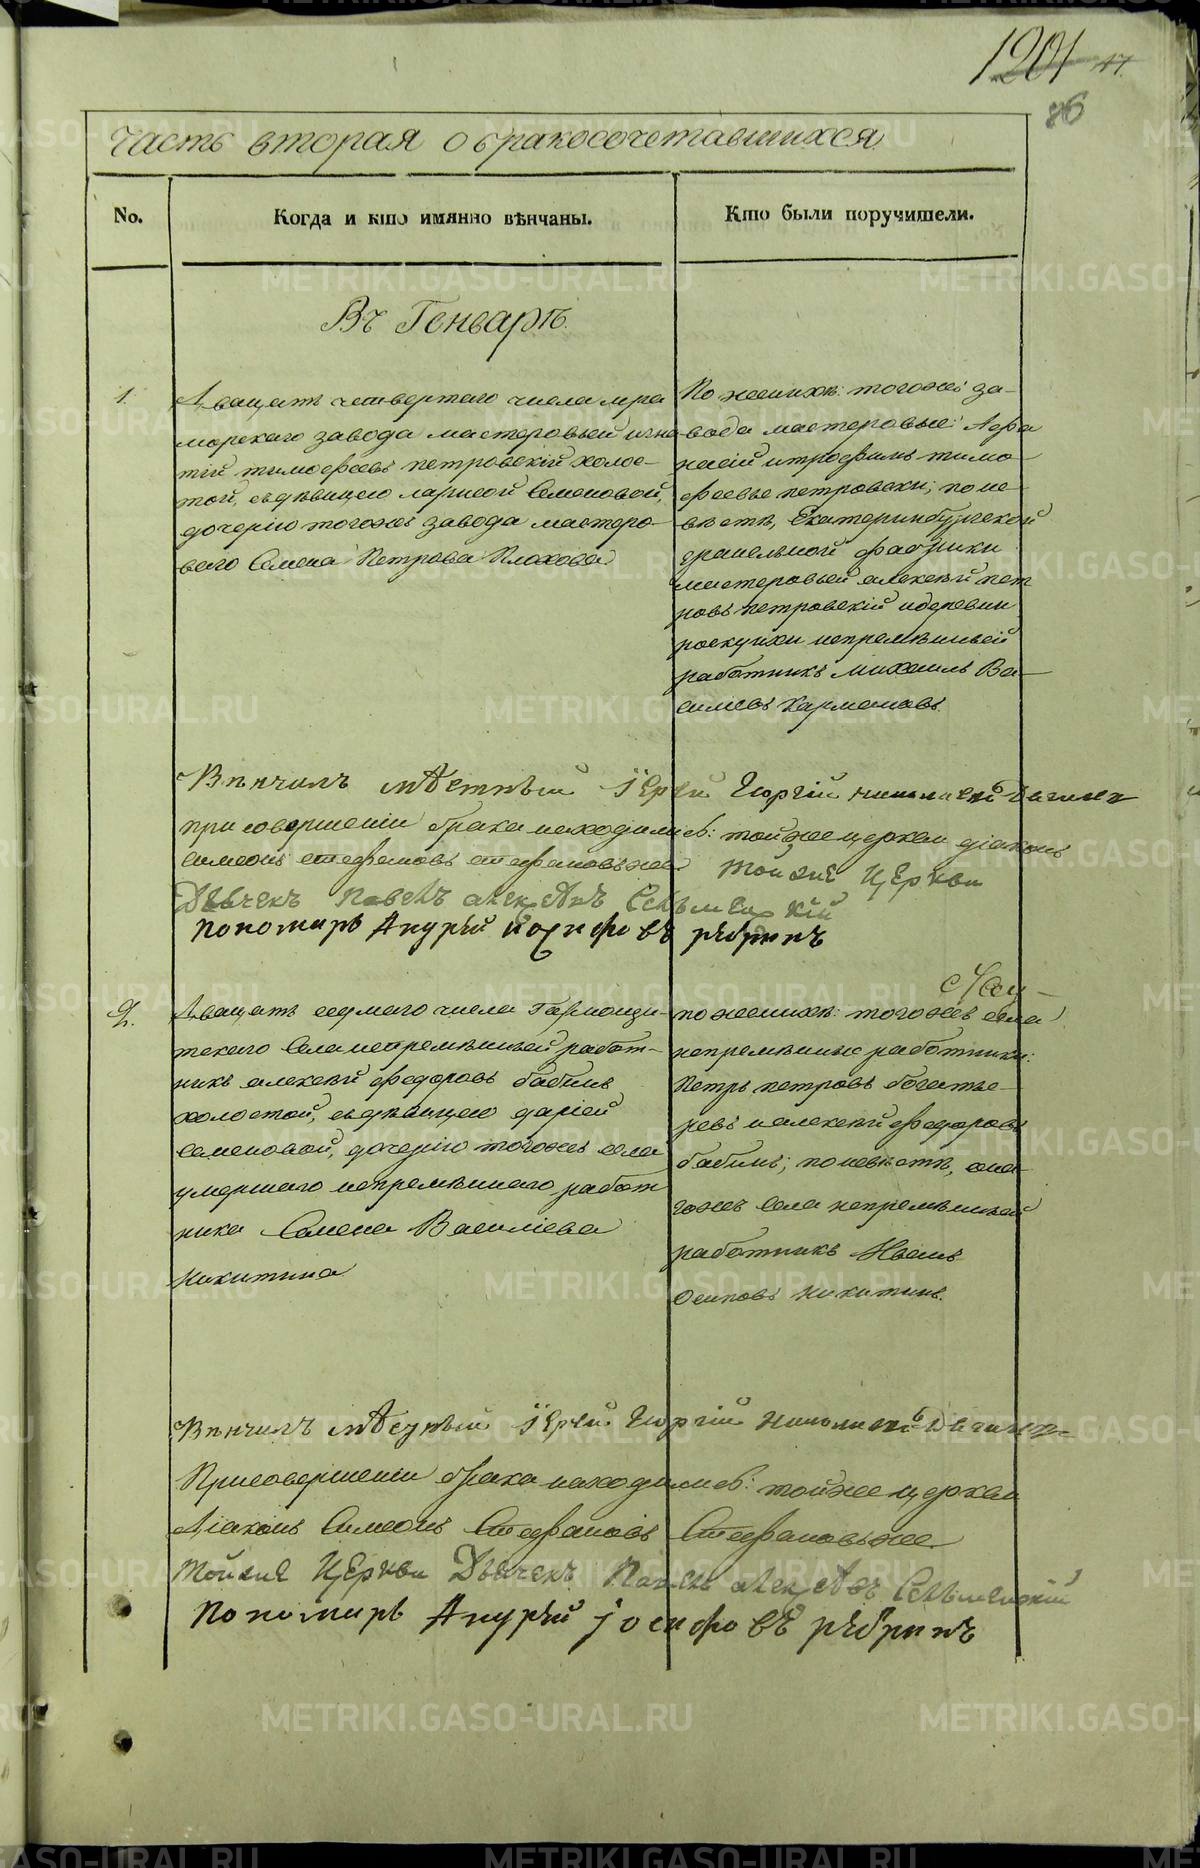 1201 47.
86
Часть вторая о бракосочетавшихся
No.
Когда и кто имянно вѣнчаны.
Кто были поручители.
Въ Генварѣ.
1.
Двацать четвертаго числа мра
морскаго завода мастеровый игна
тій тимофеевъ петровскій холос–
той, съдѣвицею ларисой Семеновой,
дочерію тогожъ завода мастеро–
ваго Семена Петрова Плохова
По женихѣ: тогожъ за–
вода мастеровые: Афа
насій итрофимъ тимо–
феевы петровски; поне–
вѣстѣ, Екатеринбургской
гранильной фабрики
мастеровый алексѣй пет
ровъ петровскій идеревни
непремѣнный
работникъ Михаилъ Ва–
силіевъ Кармановъ.
Вѣнчалъ мѣстный Іерей Георгій
присовершеніи брака находились: тойже церкви діаконъ
симеонъ стефановъ тойже Церкви
Дьячекъ Павелъ
Пономарь Андрей рѣбринъ
2.
Двацать седмаго числа
Села непремѣнный работ–
никъ алексѣй федоровъ бабинъ
холостой, съдѣвицею дарьей
Семеновой, дочерію тогожъ села
умершаго непремѣннаго работ
ника Семена Василіева
Никитина
по женихѣ: тогожъ села
непремѣнные работники:
Петръ петровъ богаты–
ревъ иалексѣй федоровъ
бабинъ; поневѣстѣ,
гожъ села непремѣнный
работникъ Иванъ
Осиповъ никитинъ.
Вѣнчалъ мѣстный Іерей Георгій
Присовершеніи брака находились: тойже церкви
Діаконъ Симеонъ Стефановъ
тойже Церкви Дьячекъ Павелъ
Пономарь Андрей іосифовъ рѣбринъ
METRIKI.GASO-URAL.RU